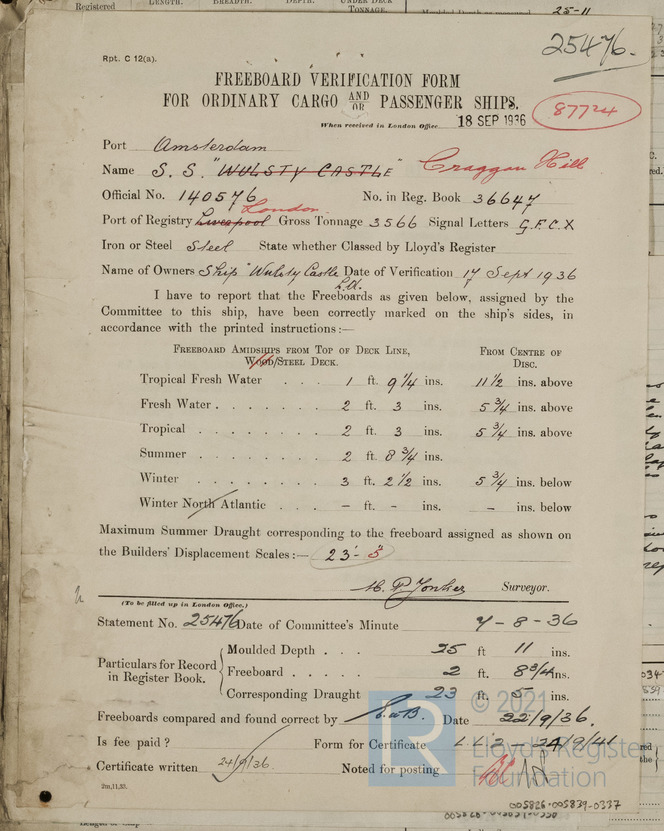 Registered LENGTH. BREADTH. DEPTH. UNDER DECK TONNAGE.
25-11
25476.
Rpt. C 12(a).
FREEBOARD VERIFICATION FORM
FOR ORDINARY CARGO AND/OR PASSENGER SHIPS.
When received in London Office 18 SEP 1936
87724
Port Amsterdam
Name S.S. "WULSTY CASTLE" Craggan Hill
Official No. 140576 No. in Reg. Book 36647
London
Port of Registry Liverpool Gross Tonnage 3566 Signal Letters G.F.C.X
Iron or Steel Steel State whether Classed by Lloyd's Register
Name of Owners Ship "Wulsty Castle Ld. Date of Verification 17 Sept 1936
I have to report that the Freeboards as given below, assigned by the
Committee to this ship, have been correctly marked on the ship's sides, in
accordance with the printed instructions:—
FREEBOARD AMIDSHIPS FROM TOP OF DECK LINE, FROM CENTRE OF
WOOD/STEEL DECK. DISC.
Tropical Fresh Water . . . 1 ft. 9 1/4 ins. 11 1/2 ins. above
Fresh Water . . . . . . . 2 ft. 3 ins. 5 3/4 ins. above
Tropical . . . . . . . . 2 ft. 3 ins. 5 3/4 ins. above
Summer . . . . . . . . 2 ft. 8 3/4 ins.
Winter . . . . . . . . 3 ft. 2 1/2 ins. 5 3/4 ins. below
Winter North Atlantic . . . – ft. – ins. – ins. below
Maximum Summer Draught corresponding to the freeboard assigned as shown on
the Builders' Displacement Scales:— 23'-5"
Surveyor.
(To be filled up in London Office.)
Statement No. 25476 Date of Committee's Minute 7-8-36
Particulars for Record in Register Book.
Moulded Depth . . . 25 ft 11 ins.
Freeboard . . . . . 2 ft. 8 3/4 ins.
Corresponding Draught 23 ft. 5 ins.
Freeboards compared and found correct by Date 22/9/36.
Is fee paid? Form for Certificate 24/9/41
Certificate written 24/9/36. Noted for posting
2m,11,33.
© 2021
Lloyd's Register
Foundation
005826-005839-0337